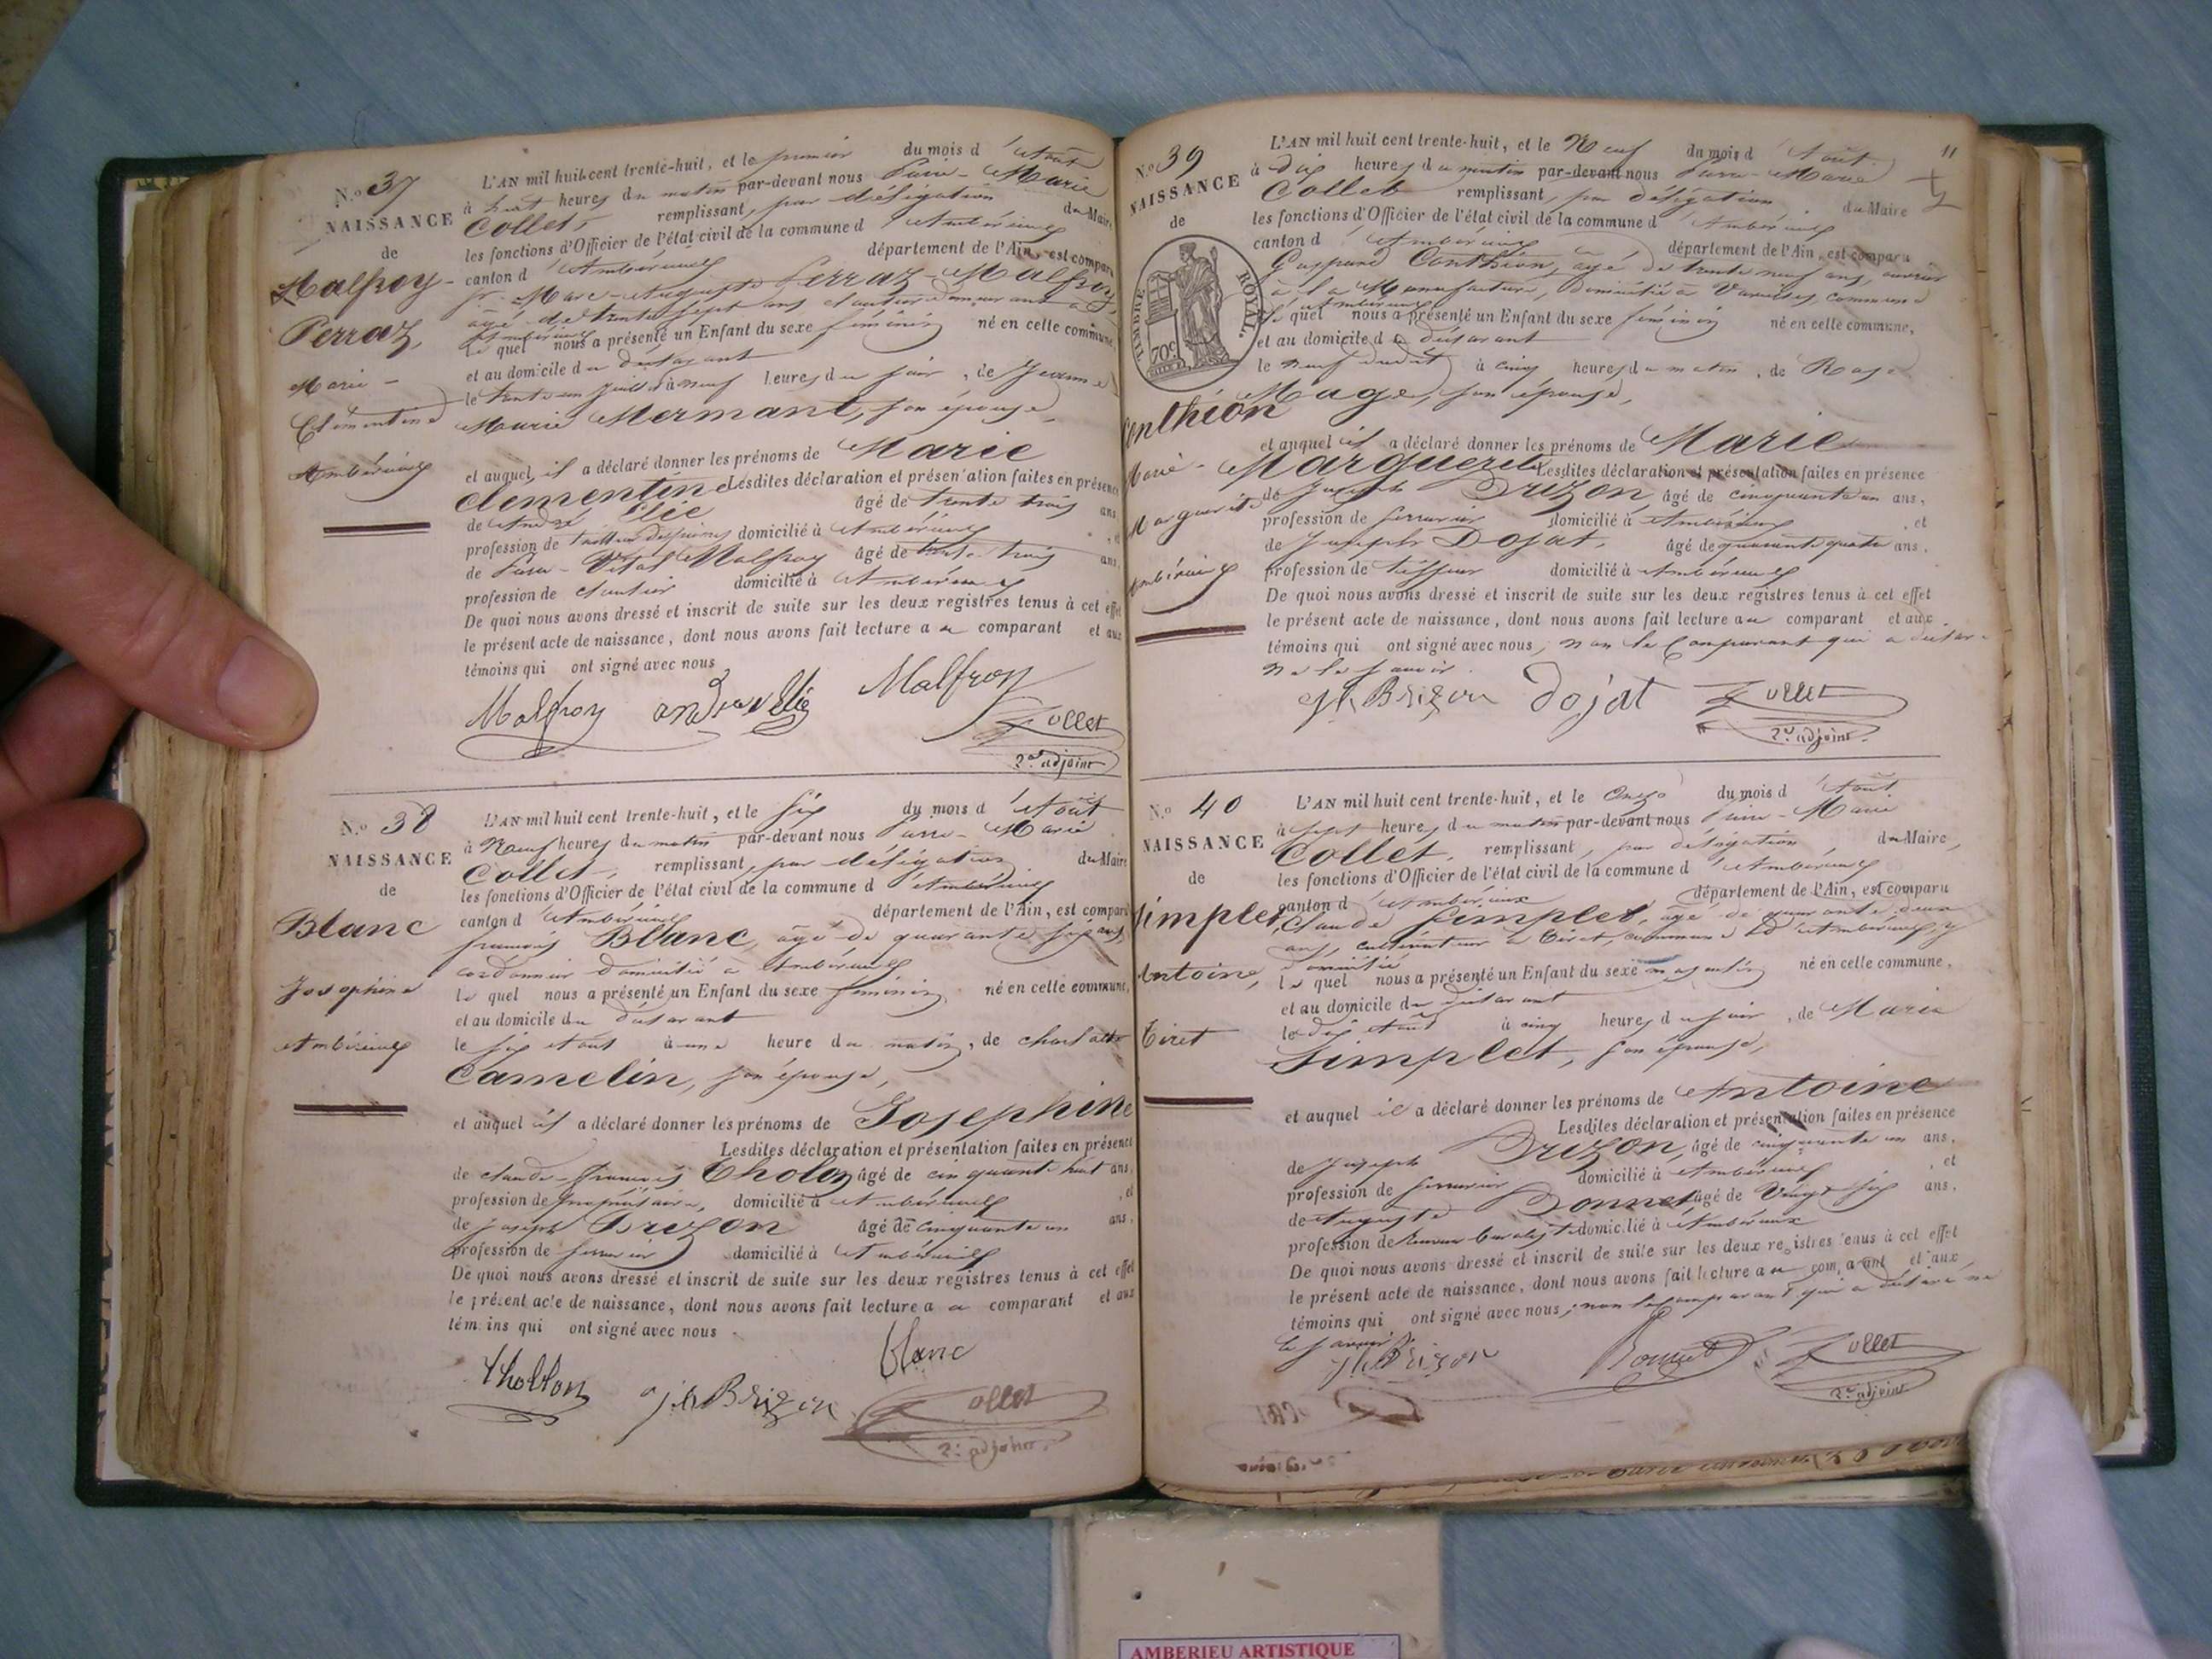 N.º 37
NAISSANCE
de
Malfroy-
Perraz,
Marie-
Clémentine
Ambérieux
L'AN mil huit cent trente-huit, et le premier du mois d'Août
à huit heures du matin par-devant nous Pierre-Marie
Collet, remplissant, par délégation du Maire
les fonctions d'Officier de l'état civil de la commune d'Ambérieux
canton d'Ambérieux département de l'Ain, est comparu
Sr. Marc-Auguste Perraz-Malfroy,
âgé de trente sept ans demeurant à
Ambérieux
le quel nous a présenté un Enfant du sexe féminin né en cette commune,
et au domicile du déclarant
le trente un juillet à neuf heures du soir, de Jeanne
Marie Mermant, son épouse,
et auquel il a déclaré donner les prénoms de Marie
Clémentine Lesdites déclaration et présentation faites en présence
de André Élie âgé de trente trois ans
profession de domicilié à Ambérieux, et
de Pierre-Vital Malfroy âgé de trente trois ans,
profession de domicilié à Ambérieux
De quoi nous avons dressé et inscrit de suite sur les deux registres tenus à cet effet
le présent acte de naissance, dont nous avons fait lecture au comparant et aux
témoins qui ont signé avec nous
Malfroy andré élie Malfroy
Collet
2.e adjoint
N.º 38
NAISSANCE
de
Blanc
Josephine
Ambérieux
L'AN mil huit cent trente-huit, et le six du mois d'Août
à Neuf heures du matin par-devant nous Pierre-Marie
Collet, remplissant, par délégation du Maire
les fonctions d'Officier de l'état civil de la commune d'Ambérieux
canton d'Ambérieux département de l'Ain, est comparu
françois Blanc, âgé de quarante six ans,
cordonnier domicilié à Ambérieux
le quel nous a présenté un Enfant du sexe féminin né en cette commune,
et au domicile du déclarant
le six Août à une heure du matin, de charlotte
Camelin, son épouse,
et auquel il a déclaré donner les prénoms de Josephine
Lesdites déclaration et présentation faites en présence
de claude-françois Tholon âgé de cinquante huit ans,
profession de propriétaire, domicilié à Ambérieux, et
de joseph Brizon âgé de cinquante un ans,
profession de serrurier domicilié à Ambérieux
De quoi nous avons dressé et inscrit de suite sur les deux registres tenus à cet effet
le présent acte de naissance, dont nous avons fait lecture au comparant et aux
témoins qui ont signé avec nous.
blanc
Thollon jh Brizon Collet
2.e adjoint
11
N.º 39
NAISSANCE
de
TIMBRE ROYAL.
70c
Conthion
Marie-
Marguerite
Ambérieux
L'AN mil huit cent trente-huit, et le Neuf du mois d'Août.
à dix heures du matin par-devant nous Pierre-Marie
Collet remplissant, par délégation du Maire
les fonctions d'Officier de l'état civil de la commune d'Ambérieux
canton d'Ambérieux département de l'Ain, est comparu
Gaspard Conthion, âgé de trente neuf ans, ouvrier
à la Manufacture, domicilié à Vareilles, commune
d'Ambérieux
le quel nous a présenté un Enfant du sexe féminin né en cette commune,
et au domicile du déclarant
le neuf dudit à cinq heures du matin, de Rose
Mage, son épouse,
et auquel il a déclaré donner les prénoms de Marie
Marguerite Lesdites déclaration et présentation faites en présence
de Joseph Brizon, âgé de cinquante un ans,
profession de serrurier domicilié à Ambérieux, et
de Joseph Dojat, âgé de quarante quatre ans,
profession de tisseur domicilié à Ambérieux
De quoi nous avons dressé et inscrit de suite sur les deux registres tenus à cet effet
le présent acte de naissance, dont nous avons fait lecture au comparant et aux
témoins qui ont signé avec nous, non le Comparant qui a déclaré
ne le savoir.
Jh Brizon Dojat Collet
2.e adjoint.
N.º 40
NAISSANCE
de
Simplet,
Antoine,
Tiret
L'AN mil huit cent trente-huit, et le Onze du mois d'Août.
à sept heures du matin par-devant nous Pierre-Marie
Collet, remplissant, par délégation, du Maire,
les fonctions d'Officier de l'état civil de la commune d'Ambérieux
canton d'Ambérieux département de l'Ain, est comparu
Claude Simplet, âgé de quarante deux
ans, cultivateur à Tiret, commune d'Ambérieux, y
domicilié
le quel nous a présenté un Enfant du sexe masculin né en cette commune,
et au domicile du déclarant
le dix Août à cinq heures du soir, de Marie
Simplet, son épouse,
et auquel il a déclaré donner les prénoms de Antoine
Lesdites déclaration et présentation faites en présence
de Joseph Brizon, âgé de cinquante un ans,
profession de serrurier domicilié à Ambérieux, et
de Auguste Bonnet âgé de Vingt six ans,
profession de domicilié à Ambérieux
De quoi nous avons dressé et inscrit de suite sur les deux registres tenus à cet effet
le présent acte de naissance, dont nous avons fait lecture au comparant et aux
témoins qui ont signé avec nous, non le comparant qui a déclaré ne
le savoir.
Jh Brizon Bonnet Collet
2.e adjoint
AMBERIEU ARTISTIQUE